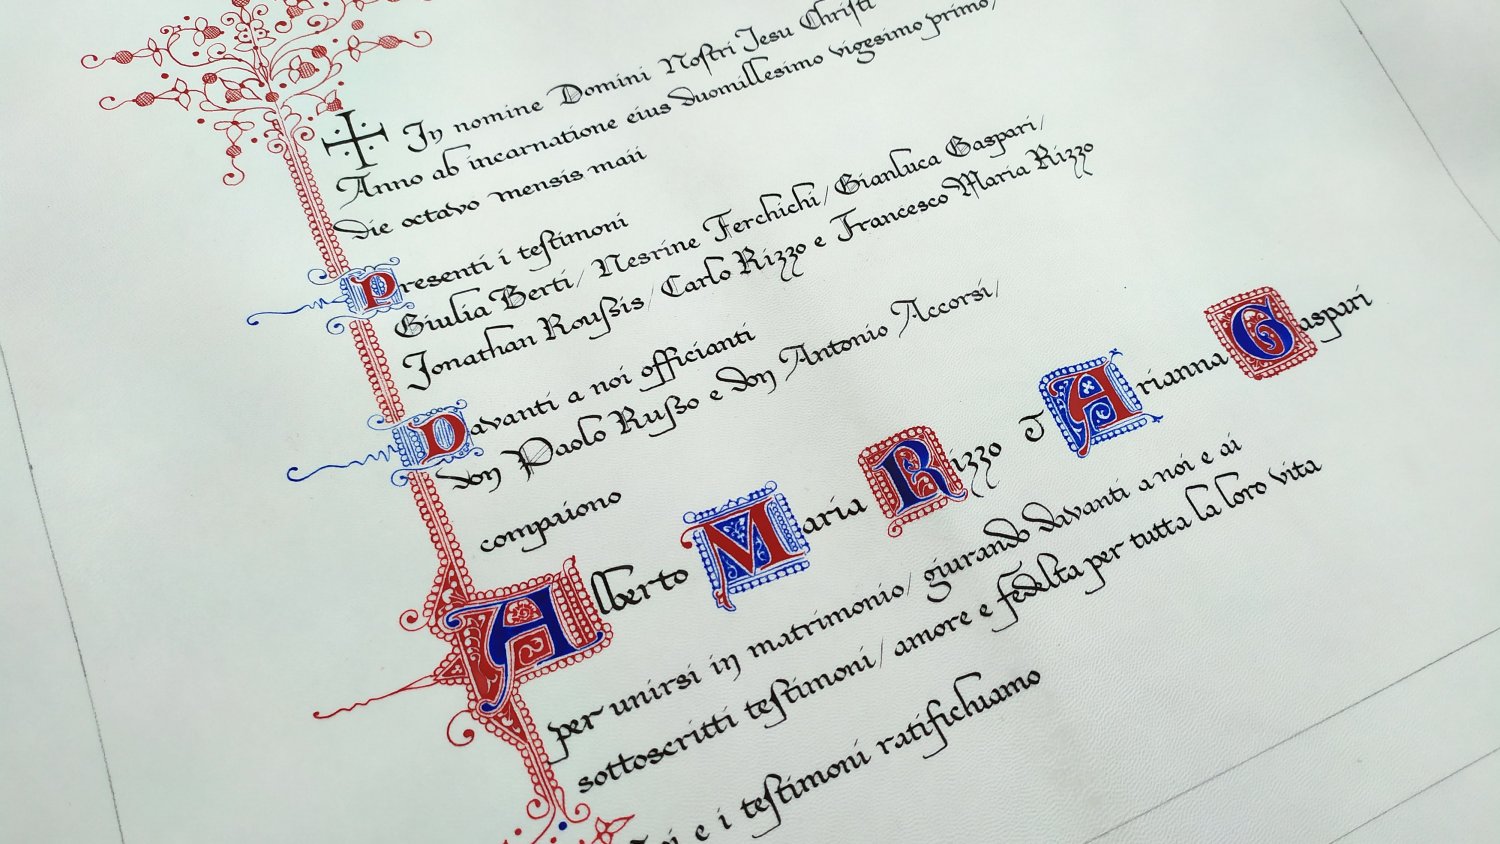 In nomine Domini Noſtri Jesu Chriſti
Anno ab incarnatione eius duomillesimo vigesimo primo/
die octavo mensis maii
Presenti i teſtimoni
Giulia Berti/ Nesrine Ferchichi/ Gianluca Gaspari/
Jonathan Rouſsis/ Carlo Rizzo e Francesco Maria Rizzo
Davanti a noi officianti
don Paolo Ruſso e don Antonio Accorsi/
compaiono
Alberto Maria Rizzo Arianna Gaspari
per unirsi in matrimonio/ giurando davanti a noi e ai
sottoscritti teſtimoni/ amore e fedelta per tutta la loro vita
Noi e i teſtimoni ratifichiamo